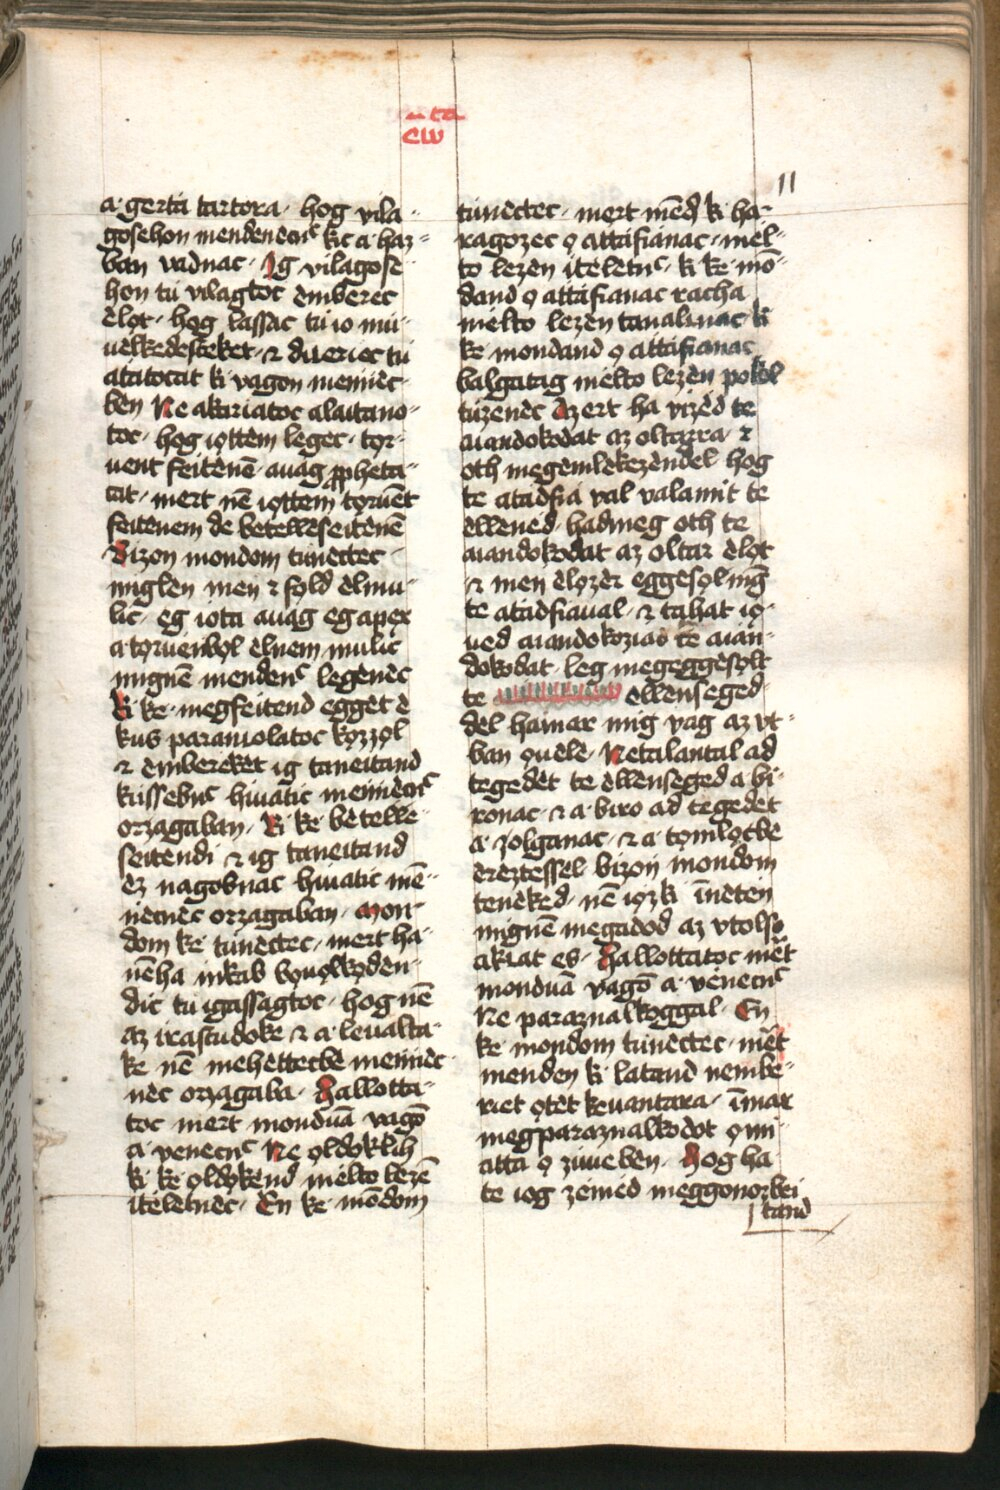 ta
ew
11
a· gerta tartora· hog vila⸗
gosehon mendenecnc kic a haz⸗
ban vadnac· Ig vilagose⸗
hon tú vilagtoc ėmberec
ėlọt· hog lassac tú io mú⸗
uėlkedesteket· ⁊ dueriec tú
atatocat ki vagon mėnnėc⸗
ben Ne akariatoc alaitano⸗
toc· hog iọttem legec· tọr⸗
uent feitenē· auag ꝓpheta⸗
cat· mert nē iọttem tọruēt
feitenem de betellėseitenē
Bizon mondom túnectec·
miglen men ⁊ fọld ėlmu⸗
lic· eg iota auag eg apex
a tọruėnbọl ėlnem mulic
mignē mendenc legenec
Ki kė· megfeitend egget ė
kus parančolatoc kọzzọl
⁊ ėmbereket ig taneitand
kússebnc hiuatic mėnnėcnc
orzagaban· Ki kė betellė⸗
seitendi ⁊ ig taneitand
ėz nagobnac hiuatic mė̄⸗
nėcnėc orzagaban· Mon⸗
dom kė túnectec· mert ha⸗
nēha inkab bọuọlkọdėn⸗
dic tú igassagtoc· hog nē
az irastudoke ⁊ a· leualta⸗
ke nē mehėttecbe mėnnėc
nėc orzagaba· Hallotta⸗
toc mert monduā vagō
a venecnc Ne ọldọklih
ki kė ọldọkend mėlto lezē
itelėtnėc· En kė mōdom
túnectec· mert mēd̄ ki ha⸗
ragozec ọ attafianac· mėl⸗
to lezen iteletnc· ki kė mō⸗
dand ọ attafianac racha
mėlto lezen tanalúnac ki
kė mondand ọ attafianac
balgatag mėlto lezen pokol
túzenec Azert ha vizėd te
aiandokodat az oltarra· ⁊
oth megėmlekezėndėl hog
te atadfia val valamit te
ėllened· hadmeg oth te
aiandokodat az oltar ėlọt
⁊ men ėlọzėr eggesọl mḡ
te atadfiaual· ⁊ tahat iọ⸗
ued aiandokoziad te aian⸗
dokodat· leg megeggesọlt
te ėllenseged⸗
dėl hamar mig vag az vt⸗
ban ọuelė· Netalantal ad
tegedėt te ėllenseged a bi⸗
ronac· ⁊ a· biro ad tegedėt
a· zolganac· ⁊ a· tọmlọcbe
ereztessel· bizon mondom
tenėked· nē iọz ki īnetėn
mignē megadod az vtolso
akiat es· Hallottatoc mēt
monduā vagō a· venecnc
Ne paraznalkoggal· En
kė· mondom túnectec· mēt
menden ki latand nėmbe⸗
riet ọtet kėuantara· īmar
megparaznalkodot ọmi⸗
atta ọ ziueben· Hog ha
te iog zemed meggonorbei
tand